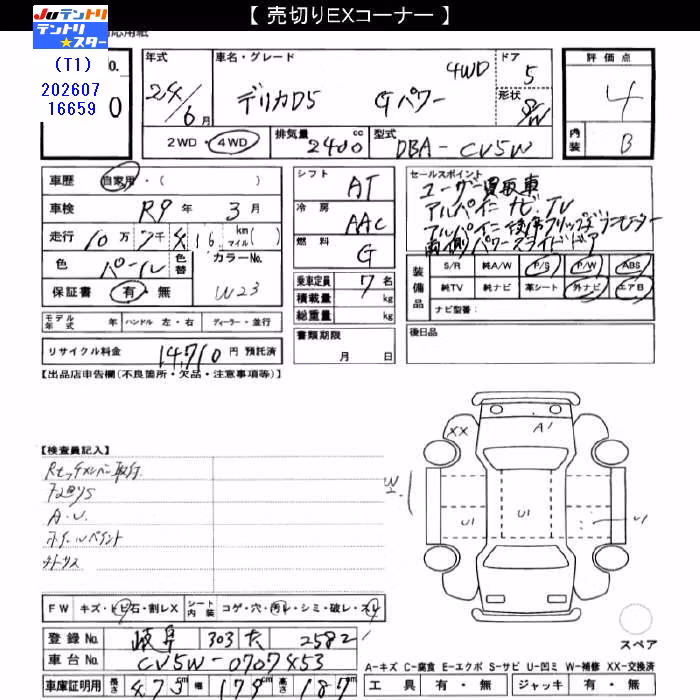 【 売切りEXコーナー 】
JUテントリ
テントリ★スター
応用紙
(T1)
202607
16659
No.
0
年式
24/6月
車名・グレード
デリカD5 Gパワー 4WD
ドア
5
形状
S/W
評価点
4
内装
B
2WD・4WD
排気量
2400cc
型式
DBA-CV5W
車歴
自家用・( )
車検
R9年 3月
走行
10万7千416 km マイル( )
色
パール
色替
カラーNo.
W23
保証書
有・無
モデル年式 年
ハンドル 左・右
ディーラー・並行
リサイクル料金
14,710円 預託済
シフト
AT
冷房
AAC
燃料
G
乗車定員
7名
積載量
kg
総重量
kg
書類期限
月 日
セールスポイント
ユーザー買取車
アルパイン ナビ TV
アルパイン 後席フリップダウンモニター
両側パワースライドドア
装備品
S/R 純A/W P/S P/W ABS
純TV 純ナビ 革シート 外ナビ エアB
ナビ型番:
後日品
【出品店申告欄(不良箇所・欠品・注意事項等)】
【検査員記入】
A・U
ホイールペイント
XX
A1
W2
U1
U1
U1
FW キズ・トビ石・割レX
シート内装 コゲ・穴・汚レ・シミ・破レ・スレ
登録No.
岐阜 303 た 2582
車台No.
CV5W-0707453
車庫証明用
長さ 473cm 幅 179cm 高さ 187cm
スペア
A-キズ C-腐食 E-エクボ S-サビ U-凹ミ W-補修 XX-交換済
工具 有・無
ジャッキ 有・無